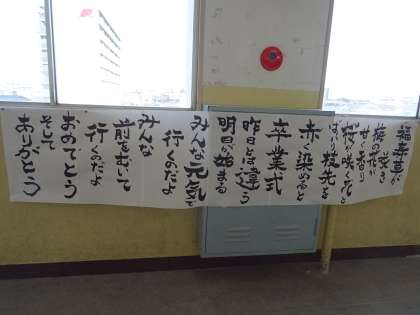 福寿草が
咲き
梅の花が
甘く香り
桜が咲く花と
ばかり枝先を
赤く染めると
卒業式
昨日とは違う
明日が始まる
みんな元気で
行くのだよ
みんな
前をむいて
行くのだよ
おめでとう
そして
ありがとう